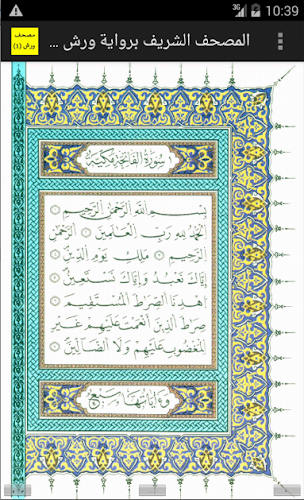 10:39
3G
المصحف الشريف برواية ورش ...
مصحف
ورش (1)
سورة الفاتحة مكية
بسم الله الرحمن الرحيم
الحمد لله رب العلمين الرحمن
الرحيم ملك يوم الدين
إياك نعبد وإياك نستعين
اهدنا الصرط المستقيم
صرط الذين أنعمت عليهم غير
المغضوب عليهم ولا الضالين
وءاياتها سبع